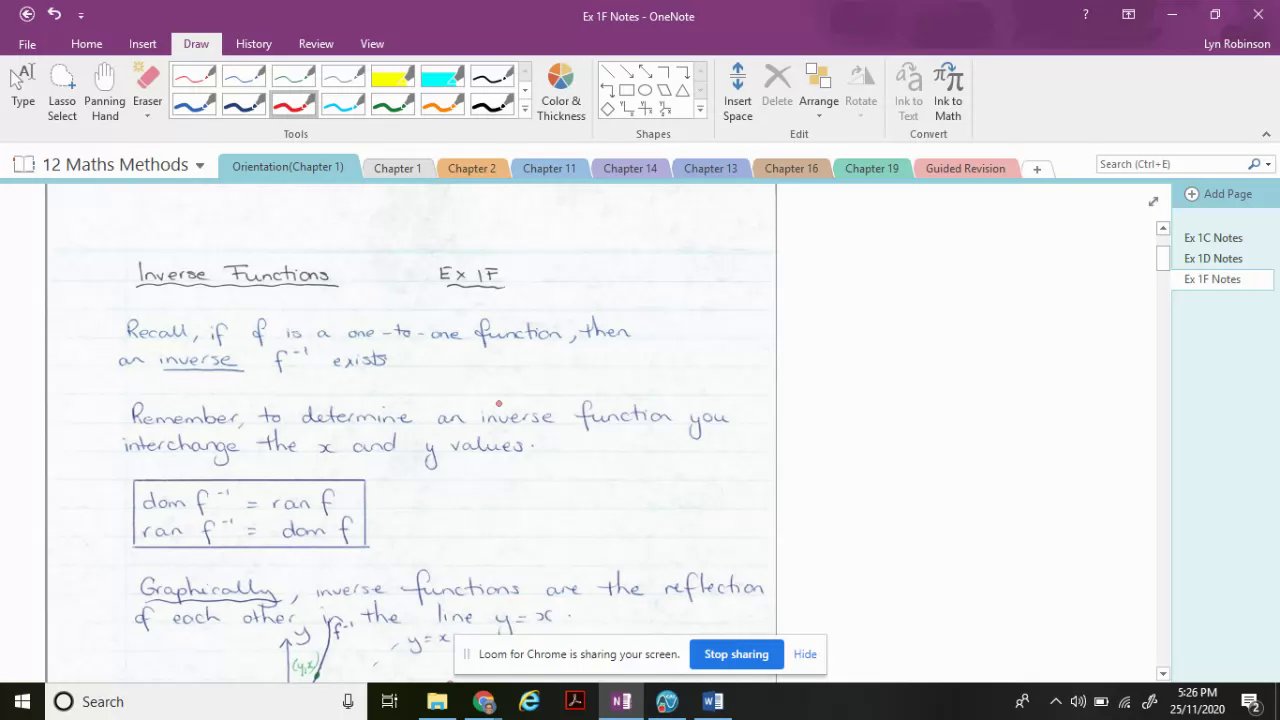 Ex 1F Notes - OneNote
?
File
Home
Insert
Draw
History
Review
View
Lyn Robinson
Type
Lasso
Select
Panning
Hand
Eraser
Color &
Thickness
Insert
Space
Delete
Arrange
Rotate
Ink to
Text
Ink to
Math
Tools
Shapes
Edit
Convert
12 Maths Methods
Orientation(Chapter 1)
Chapter 1
Chapter 2
Chapter 11
Chapter 14
Chapter 13
Chapter 16
Chapter 19
Guided Revision
Search (Ctrl+E)
Add Page
Ex 1C Notes
Ex 1D Notes
Ex 1F Notes
Inverse Functions Ex 1F
Recall, if f is a one-to-one function, then
an inverse f⁻¹ exists
Remember, to determine an inverse function you
interchange the x and y values.
dom f⁻¹ = ran f
ran f⁻¹ = dom f
Graphically, inverse functions are the reflection
of each other in the line y = x.
y
f⁻¹
y = x
(y,x)
Loom for Chrome is sharing your screen.
Stop sharing
Hide
Search
5:26 PM
25/11/2020
2